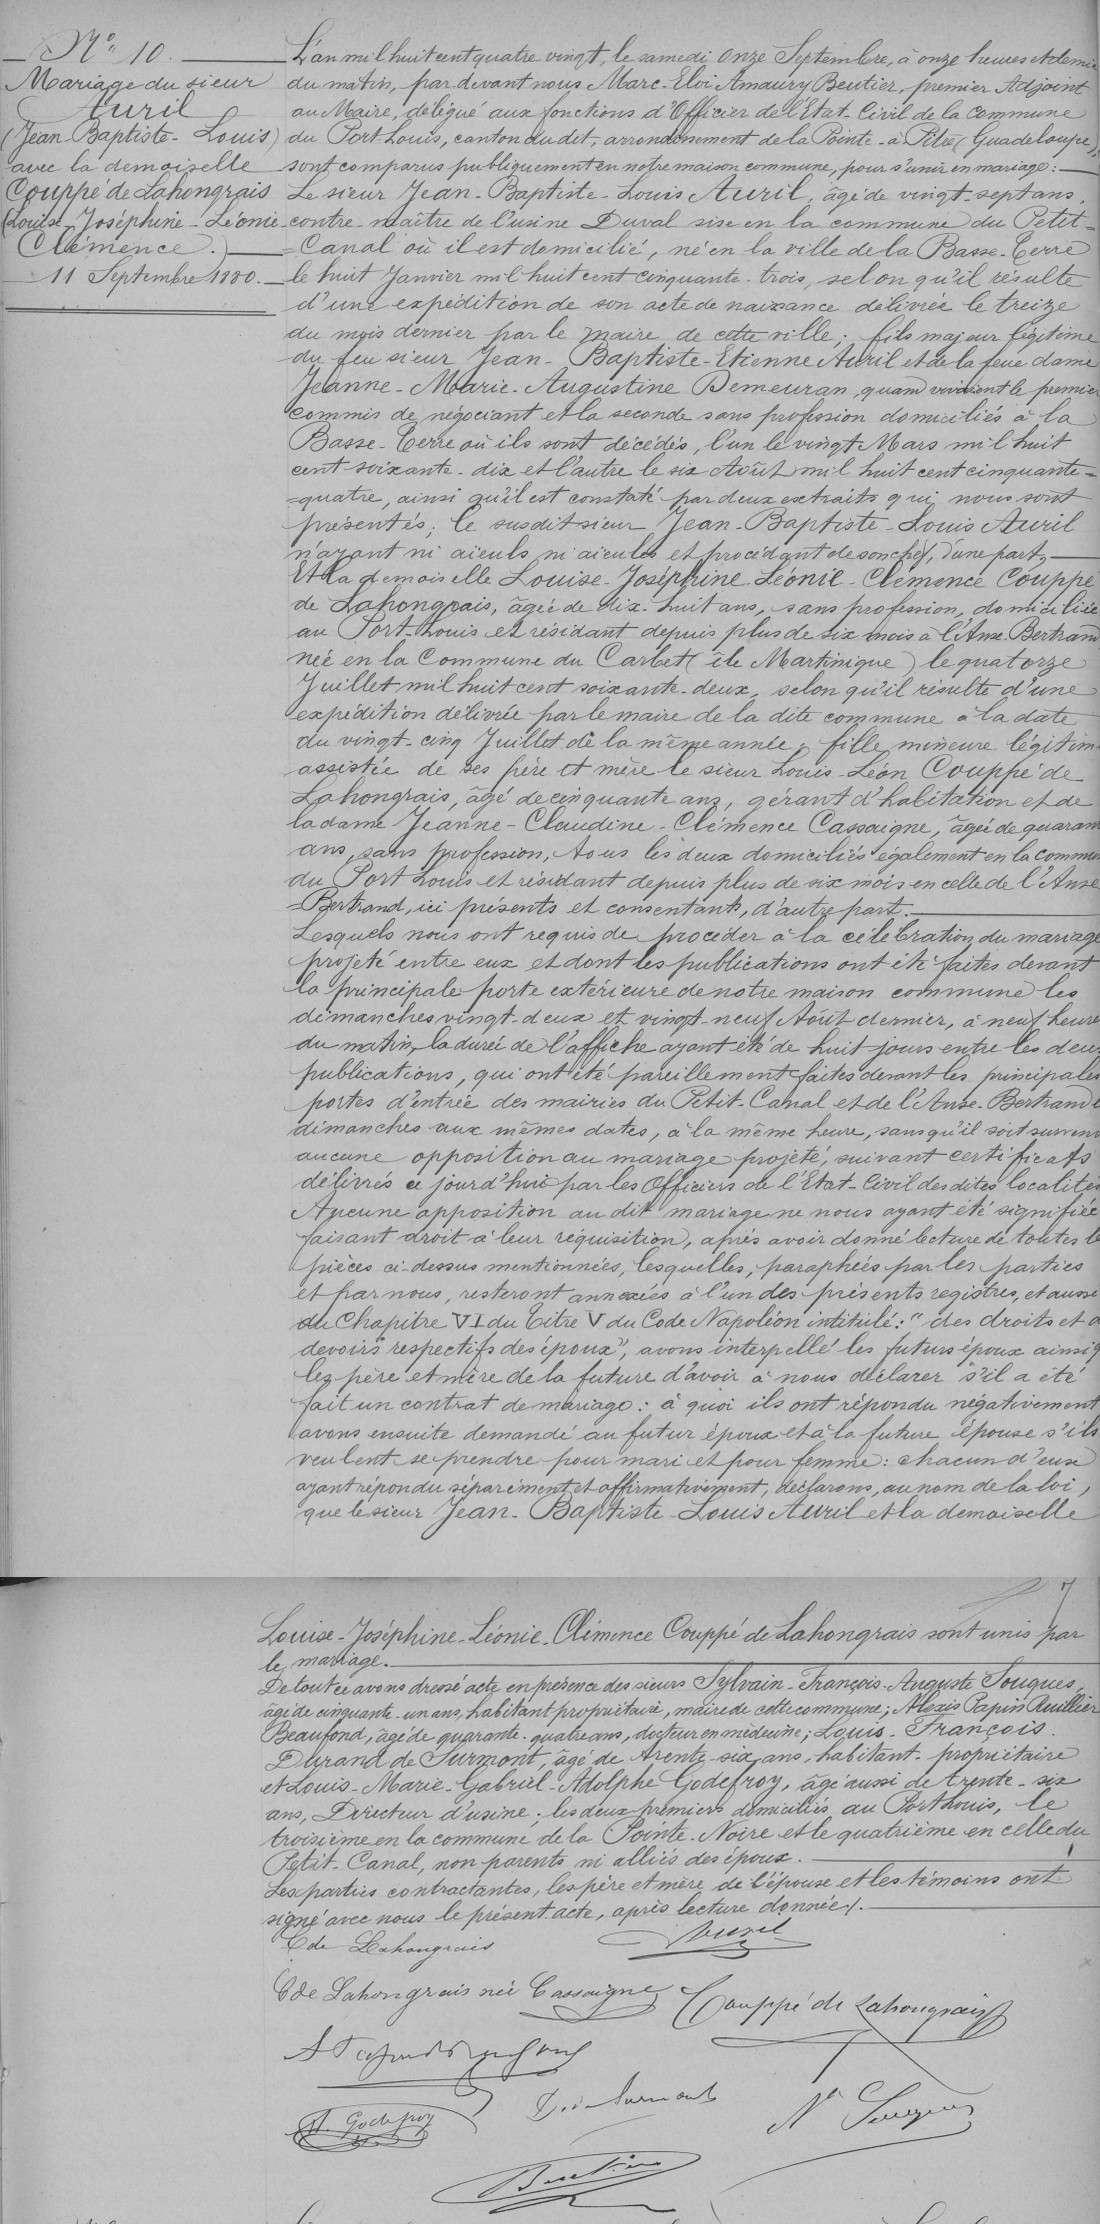 N° 10.
Mariage du sieur
Auril
(Jean-Baptiste-Louis)
avec la demoiselle
Couppé de Lahongrais
(Louise-Joséphine-Léonie
Clémence.)
11 Septembre 1880.
L'an mil huit cent quatre vingt, le samedi onze Septembre, à onze heures et demie
du matin, par devant nous Marc-Eloi Amaury Beutier, premier Adjoint
au Maire, délégué aux fonctions d'Officier de l'Etat-Civil de la Commune
du Port-Louis, canton du dit, arrondissement de la Pointe-à-Pitre (Guadeloupe),
sont comparus publiquement en notre maison commune, pour s'unir en mariage:
Le sieur Jean-Baptiste-Louis Auril, âgé de vingt-sept ans,
contre-maître de l'usine Duval sise en la commune du Petit-
=Canal où il est domicilié, né en la ville de la Basse-Terre
le huit Janvier mil huit cent cinquante-trois, selon qu'il résulte
d'une expédition de son acte de naissance délivrée le treize
du mois dernier par le maire de cette ville; fils majeur légitime
du feu sieur Jean-Baptiste-Etienne Auril et de la feue dame
Jeanne-Marie-Augustine Demeuran, quand vivaient le premier
commis de négociant et la seconde sans profession domiciliés à la
Basse-Terre où ils sont décédés, l'un le vingt Mars mil huit
cent soixante-dix et l'autre le six Août mil huit cent cinquante-
=quatre, ainsi qu'il est constaté par deux extraits qui nous sont
présentés; le susdit sieur Jean-Baptiste-Louis Auril
n'ayant ni aïeuls, ni aïeules et procédant de son chef, d'une part,
Et la demoiselle Louise-Joséphine-Léonie-Clémence Couppé
de Lahongrais, âgée de dix-huit ans, sans profession, domiciliée
au Port-Louis et résidant depuis plus de six mois à l'Anse-Bertrand
née en la Commune du Carbet (île Martinique) le quatorze
Juillet mil huit cent soixante-deux, selon qu'il résulte d'une
expédition délivrée par le maire de la dite commune à la date
du vingt-cinq Juillet de la même année; fille mineure légitime
assistée de ses père et mère le sieur Louis-Léon Couppé de
Lahongrais, âgé de cinquante ans, gérant d'habitation et de
la dame Jeanne-Claudine-Clémence Cassaigne, âgée de quaran
ans, sans profession, tous les deux domiciliés également en la commu
du Port Louis et résidant depuis plus de six mois en celle de l'Anse
=Bertrand, ici présents et consentants, d'autre part.
Lesquels nous ont requis de procéder à la célébration du mariage
projeté entre eux et dont les publications ont été faites devant
la principale porte extérieure de notre maison commune les
dimanches vingt-deux et vingt-neuf Août dernier, à neuf heures
du matin, la durée de l'affiche ayant été de huit jours entre les deux
publications, qui ont été pareillement faites devant les principales
portes d'entrée des mairies du Petit-Canal et de l'Anse-Bertrand
dimanches aux mêmes dates, à la même heure, sans qu'il soit survenu
aucune opposition au mariage projeté, suivant certificats
délivrés ce jourd'hui par les Officiers de l'Etat-Civil des dites localités
Aucune opposition au dit mariage ne nous ayant été signifiée
faisant droit à leur réquisition, après avoir donné lecture de toutes le
pièces ci-dessus mentionnées, lesquelles, paraphées par les parties
et par nous, resteront annexées à l'un des présents registres, et aussi
du Chapitre VI du Titre V du Code Napoléon intitulé: "des droits et d
devoirs respectifs des époux", avons interpellé les futurs époux ainsi q
les père et mère de la future d'avoir à nous déclarer s'il a été
fait un contrat de mariage: à quoi ils ont répondu négativement
avons ensuite demandé au futur époux et à la future épouse s'ils
veulent se prendre pour mari et pour femme: chacun d'eux
ayant répondu séparément et affirmativement, déclarons, au nom de la loi,
que le sieur Jean-Baptiste-Louis Auril et la demoiselle
7
Louise-Joséphine-Léonie-Clémence Couppé de Lahongrais sont unis par
le mariage.
De tout ce avons dressé acte en présence des sieurs Sylvain-François-Auguste Souques,
âgé de cinquante-un ans, habitant propriétaire, maire de cette commune; Alexis Papin Ruillier
Beaufond, âgé de quarante-quatre ans, docteur en médecine; Louis-François
Durand de Surmont, âgé de trente-six ans, habitant-propriétaire
et Louis-Marie-Gabriel-Adolphe Godefroy, âgé aussi de trente-six
ans, Directeur d'usine; les deux premiers domiciliés au Port Louis, le
troisième en la commune de la Pointe-Noire et le quatrième en celle du
Petit-Canal, non parents ni alliés des époux.
Les parties contractantes, les père et mère de l'épouse et les témoins ont
signé avec nous le présent acte, après lecture donnée.
C de Lahongrais
Auril
C de Lahongrais née Cassaigne
Couppé de Lahongrais
A. Godefroy
D. de Surmont
Beutier